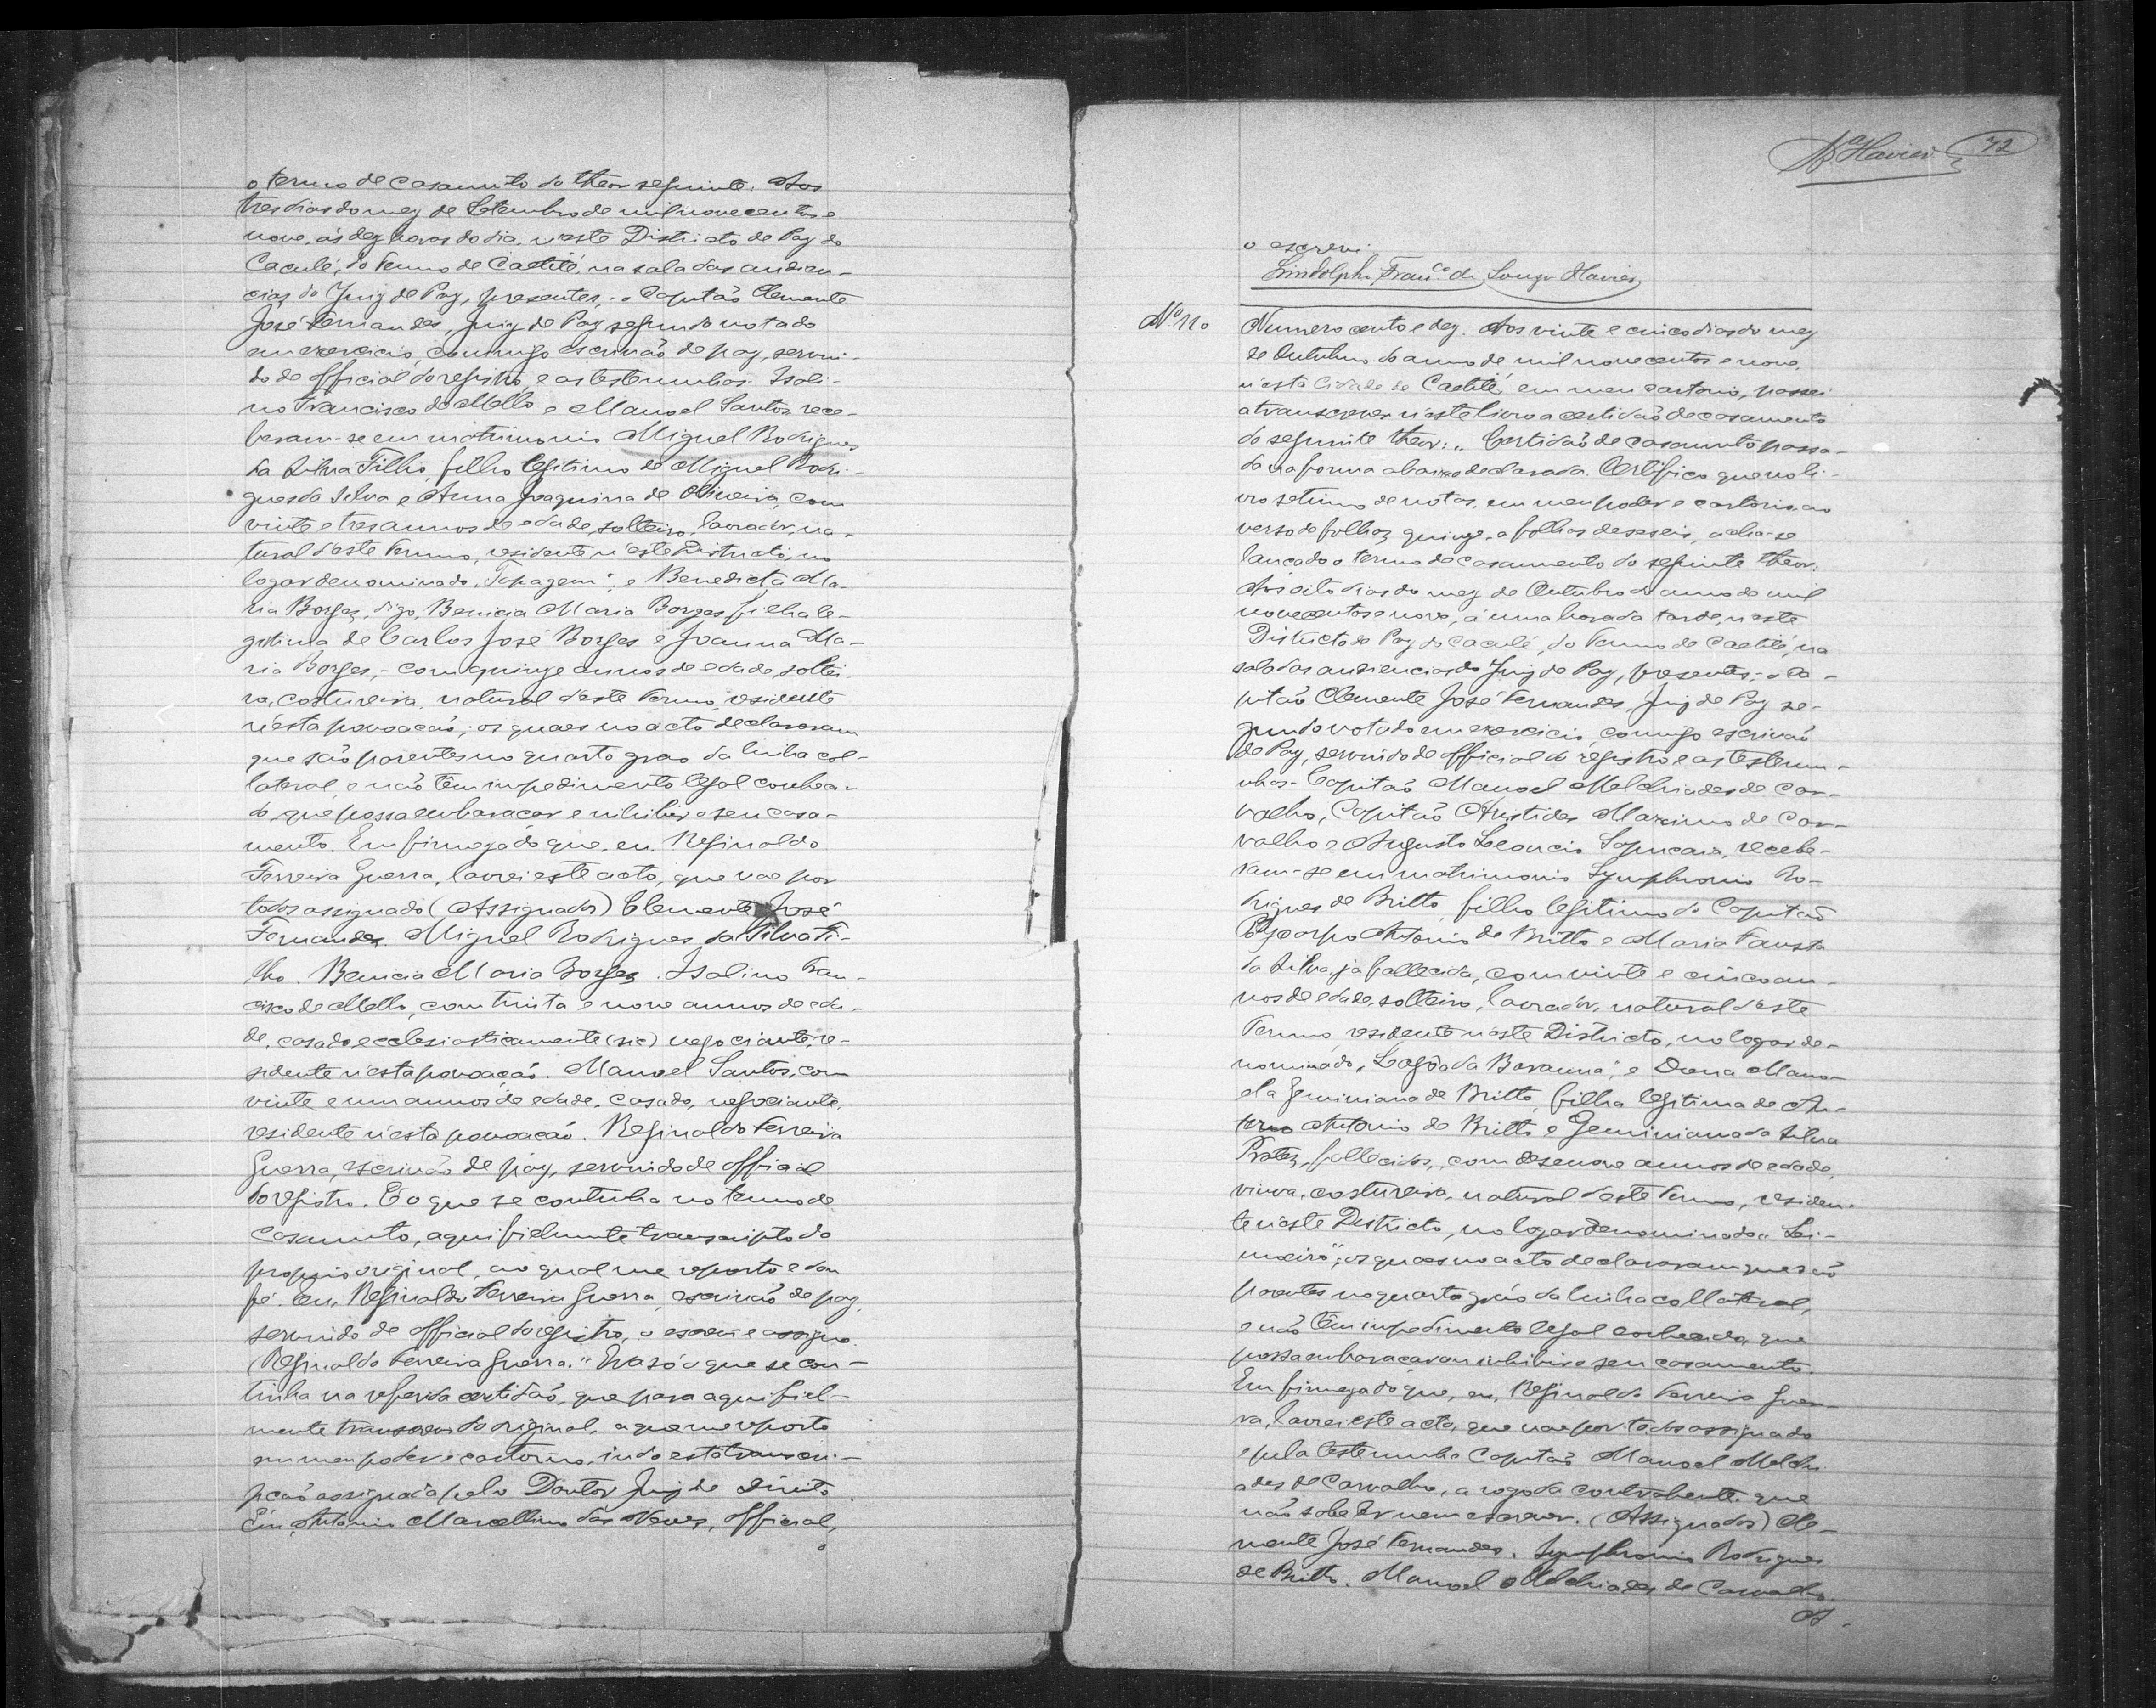 o termo de casamento do theor seguinte. Aos
tres dias do mez de Setembro de mil nove centos e
nove, ás dez horas do dia, n'este Districto de Paz do
Caculé, do Termo de Caetité, na sala das audien-
cias do Juiz de Paz, presentes,- o Capitão Clemente
José Fernandes, Juiz de Paz segundo votado
em exercicio, commigo escrivão de paz, servin-
do de official do registro, e as testemunhas Isali-
no Francisco de Mello e Manoel Santos, rece-
beram-se em matrimonio Miguel Rodrigues
da Silva Filho, filho legitimo de Miguel Rodri-
gues da Silva e Anna Joaquina de Oliveira, com
vinte e tres annos de edade, solteiro, lavrador, na-
tural d'este Termo, residente n'este Districto, no
logar denominado "Tapagem", e Benedicta Ma-
ria Borges, digo, Benicia Maria Borges filha le-
gitima de Carlos José Borges e Joanna Ma-
ria Borges,- com quinze annos de edade, soltei-
ra, costureira, natural d'este Termo, residente
n'esta povoação; os quaes no acto declararam
que são parentes no quarto grao da linha col-
lateral, e não tem impedimento legal conheci-
do, que possa embaraçar e inhibir o seu casa-
mento. Em firmeza do que, eu, Reginaldo
Ferreira Guerra, lavrei este acto, que vae por
todos assignado (Assignados) Clemente José
Fernandes. Miguel Rodrigues da Silva Fi-
lho. Benicia Maria Borges. Isalino Fran-
cisco de Mello, com trinta e nove annos de eda-
de, casado, ecclesiasticamente (sic) negociante, re-
sidente n'esta povoação. Manoel Santos, com
vinte e um annos de edade, casado, negociante,
residente n'esta povoação. Reginaldo Ferreira
Guerra, escrivão de paz, servindo de official
do registro. É o que se continha no termo de
casamento, aqui fielmente transcripto do
proprio original, ao qual me reporto e dou
fé. Eu, Reginaldo Ferreira Guerra, escrivão de paz,
servindo de official do registro, o escrevi e assigno.
Reginaldo Ferreira Guerra." Era só o que se con-
tinha na referida certidão, que para aqui fiel-
mente transcrevi do original, a que me reporto
em meu poder e cartorio, indo esta transcri-
pção assignada pelo Doutor Juiz de Direito.
Eu, Antonio Marcellino das Neves, official,
o
Xavier 72
o escrevi.
Lindolpho Franco. de Souza Xavier
Nº 110
Numero cento e dez. Aos vinte e cinco dias do mez
de Outubro do anno de mil nove centos e nove,
n'esta Cidade de Caetité, em meu cartorio, passei
a transcrever n'este livro a certidão de casamento
do seguinte theor: "Certidão de casamento passa-
da na forma abaixo declarada. Certifico que no li-
vro setimo de notas, em meu poder e cartorio, ao
verso de folhas quinze, e folhas deseseis, acha-se
lançado o termo de casamento do seguinte theor:
Aos oito dias do mez de Outubro do anno de mil
nove centos e nove, á uma hora da tarde, n'este
Districto de Paz do Caculé, do Termo de Caetité, na
sala das audiencias do Juiz de Paz, presentes,- o Ca-
pitão Clemente José Fernandes, Juiz de Paz se-
gundo votado em exercicio, comigo escrivão
de Paz, servindo de official do registro e as testemu-
nhas- Capitão Manoel Melchiades de Car-
valho, Capitão Aristides Maximo de Car-
valho e Augusto Leoncio Sapucaia, recebe-
ram-se em matrimonio Symphronio Ro-
drigues de Britto, filho legitimo do Capitão
Polycarpo Antonio de Britto e Maria Fausta
da Silva, já fallecida, com vinte e cinco an-
nos de edade, solteiro, lavrador, natural d'este
Termo, residente n'este Districto, no logar de-
nominado "Lagôa da Baranna", e Dona Mano-
ela Geminiana de Britto, filha legitima de
Antonio de Britto e Geminiana da Silva
Prates, fallecidos, com desenove annos de edade,
viuva, costureira, natural d'este Termo, residen-
te n'este Districto, no logar denominado "Li-
moeiro"; os quaes no acto declararam que são
parentes no quarto gráo da linha collateral,
e não têm impedimento legal conhecido, que
possa embaraçar ou inhibir o seu casamento.
Em firmeza do que, eu, Reginaldo Ferreira Guer-
ra, lavrei este acto, que vae por todos assignado
e pela testemunha Capitão Manoel Melchi-
ades de Carvalho, a rogo da contrahente, que
não sabe ler nem escrever. (Assignados) Cle-
mente José Fernandes. Symphronio Rodrigues
de Britto. Manoel Melchiades de Carvalho.
A-